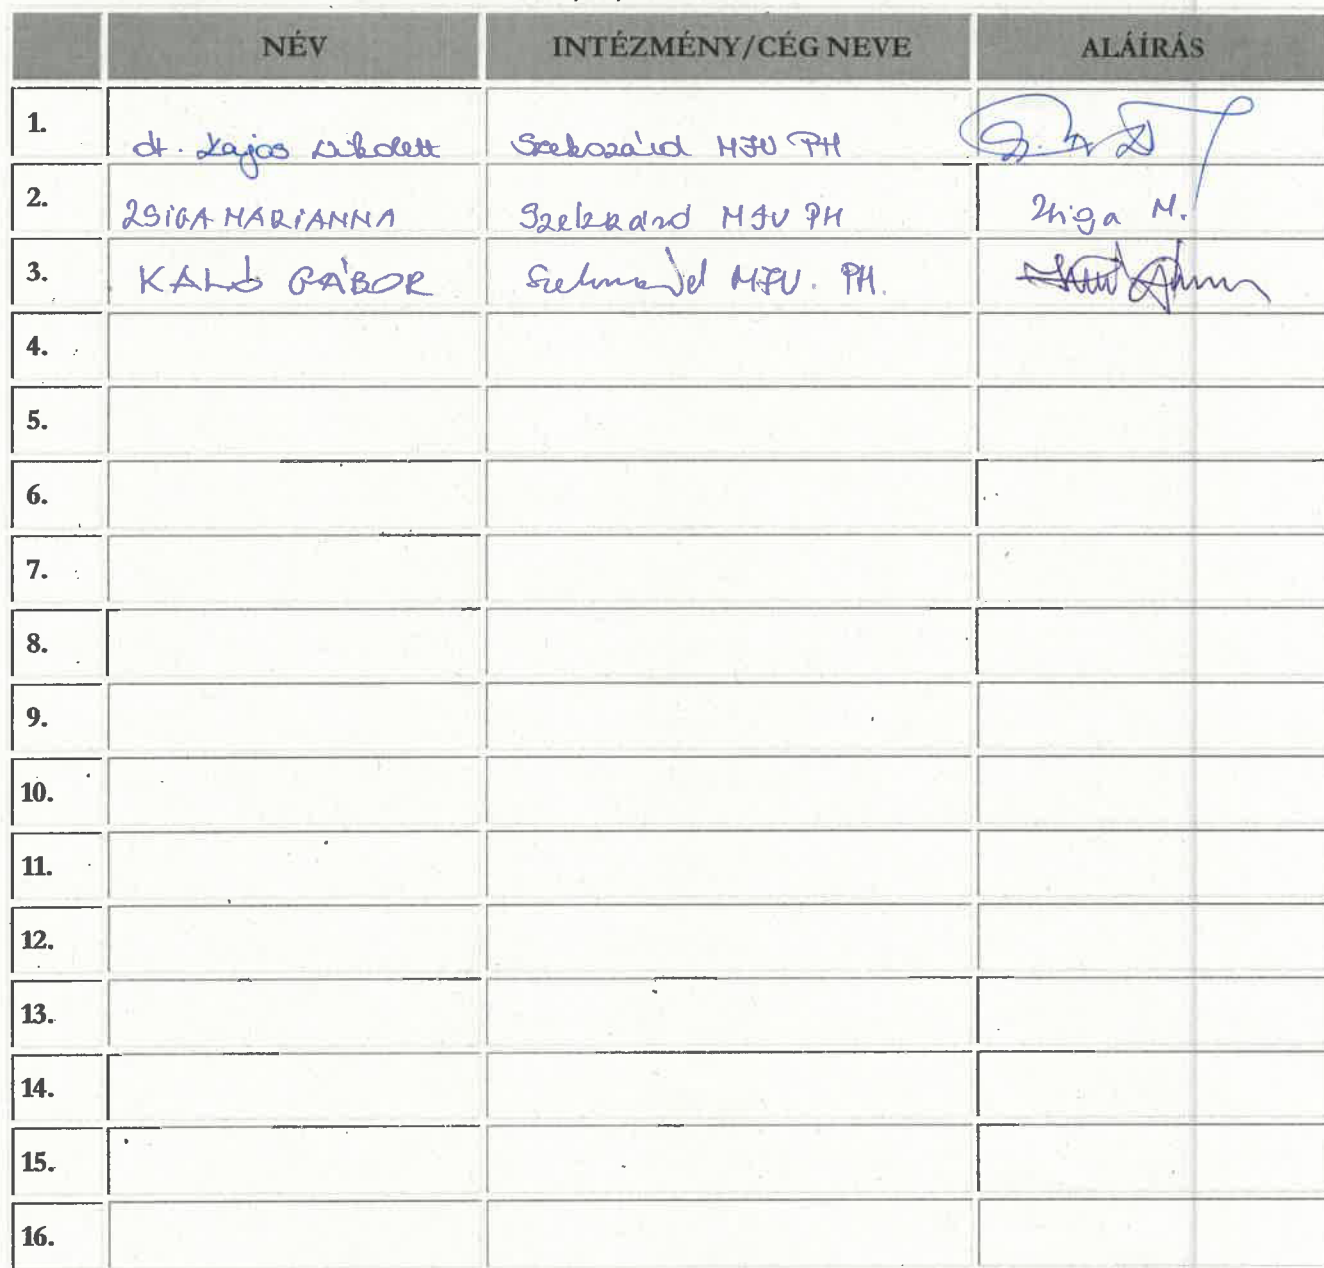 NÉV INTÉZMÉNY/CÉG NEVE ALÁÍRÁS
1. dr. Lajos Nikolett Szekszárd MJV PH
2. ZSIGA MARIANNA Szekszárd MJV PH Zsiga M.
3. KALÓ GÁBOR Szekszárd MJV. PH.
4.
5.
6.
7.
8.
9.
10.
11.
12.
13.
14.
15.
16.